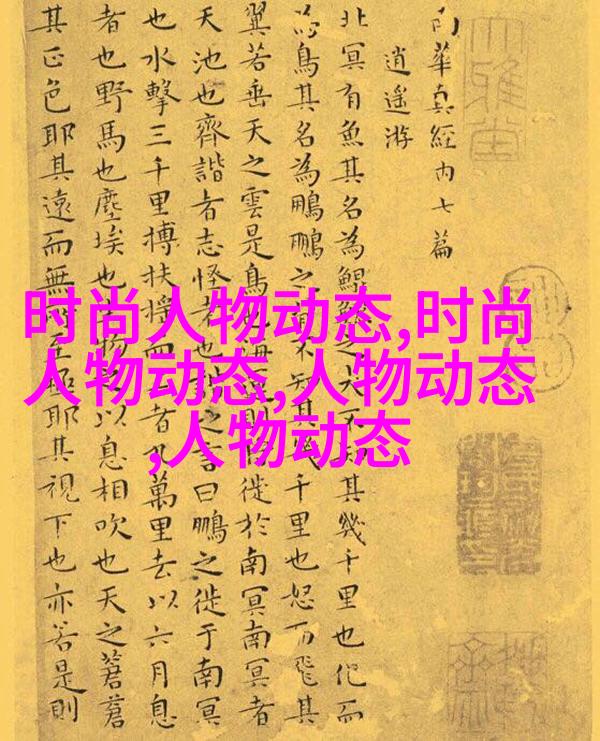 南華真經內七篇
逍遙游
北冥有魚其名為鯤鯤之大不知其幾千里也化而
為鳥其名為鵬鵬之背不知其幾千里也怒而飛其
翼若垂天之雲是鳥也海徙於南冥南冥者
天池也齊諧者志怪者也諧之言曰鵬之徙于南冥
也水擊三千里搏扶搖而者九萬里去以六月息
者也野馬也塵埃也生物以息相吹也天之蒼蒼
其正色耶其遠而無所至極耶其視下也亦若是則
时尚人物动态,时尚
人物动态,人物动态
,人物动态